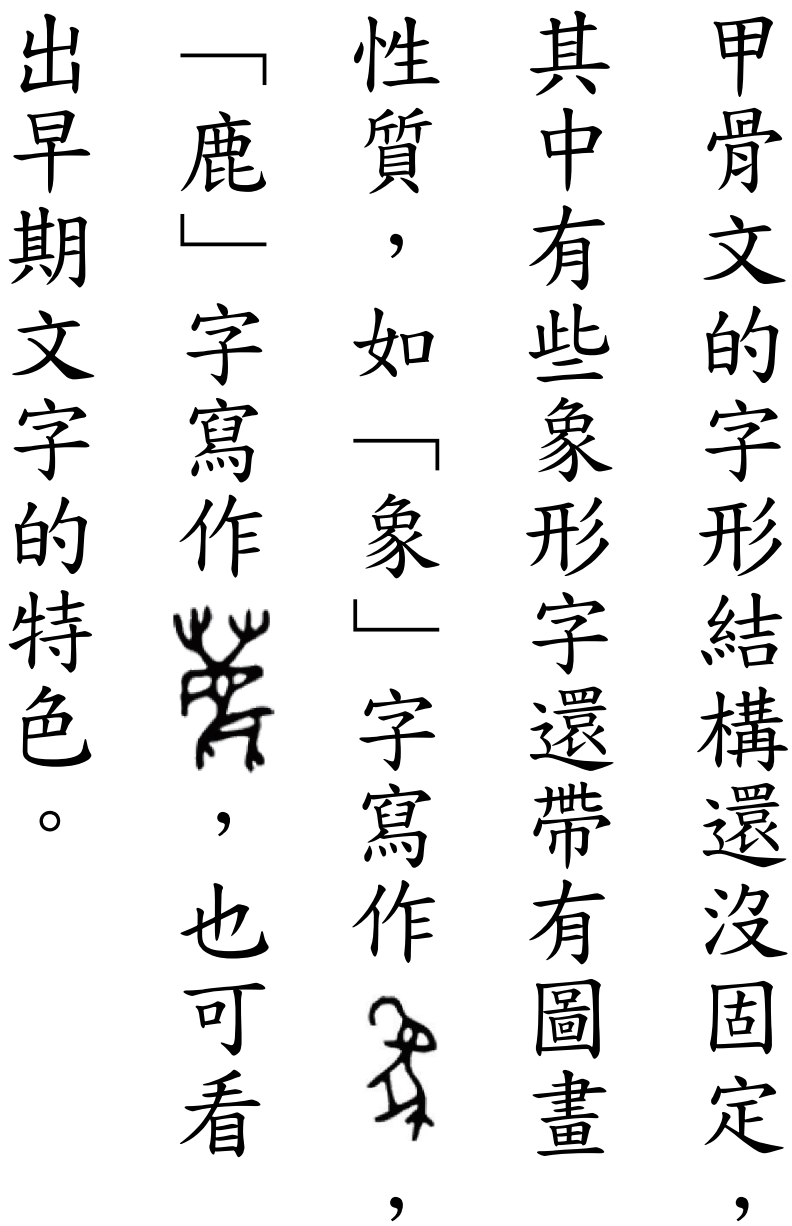 甲骨文的字形結構還沒固定，
其中有些象形字還帶有圖畫
性質，如「象」字寫作，
「鹿」字寫作，也可看
出早期文字的特色。